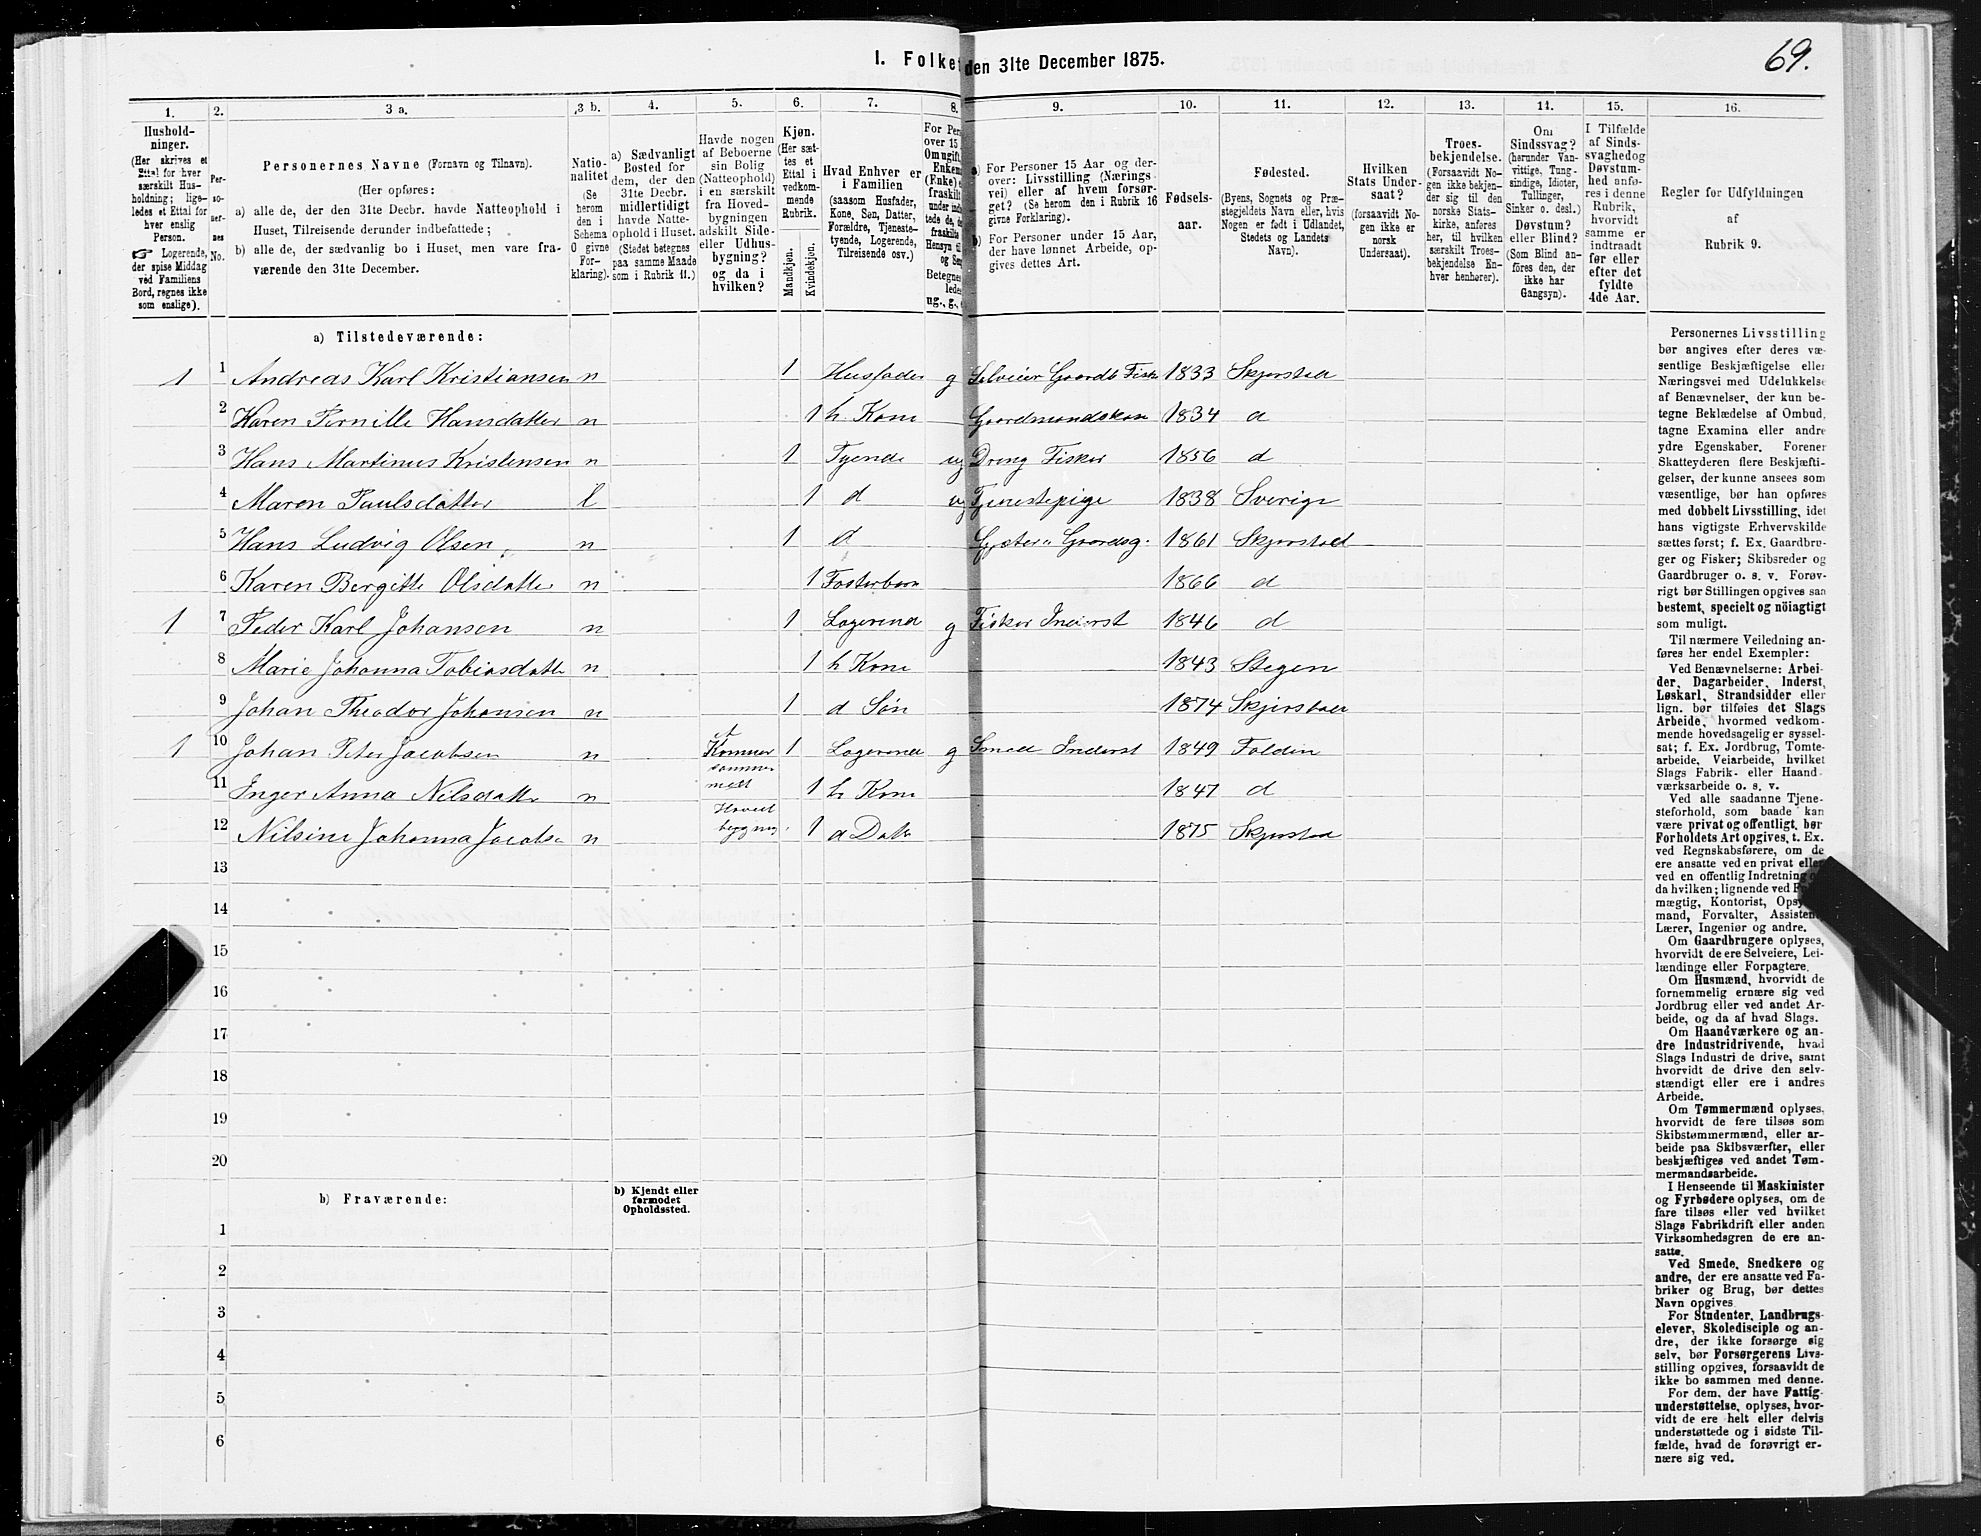 1. Folke den 31te December 1875.
69.
1. 2. 3 a. 3 b. 4. 5. 6. 7. 8. 9. 10. 11. 12. 13. 14. 15. 16.
Hushold-
ninger.
(Her skrives et
Ettal for hver
særskilt Hus-
holdning; lige-
ledes et Ettal for
hver enslig
Person.
☞ Logerende,
der spise Middag
ved Familiens
Bord, regnes ikke
som enslige).
Per-
so-
ner-
nes
No.
Personernes Navne (Fornavn og Tilnavn).
(Her opføres:
a) alle de, der den 31te Decbr. havde Natteophold i
Huset, Tilreisende derunder indbefattede;
b) alle de, der sædvanlig bo i Huset, men vare fra-
værende den 31te December.
Natio-
nalitet
(Se
herom
den i
Schema
O givne
For-
klaring).
a) Sædvanligt
Bosted for
dem, der den
31te Decbr.
midlertidigt
havde Natte-
ophold i Huset.
(Stedet betegnes
paa samme Maade
som i Rubrik 11.)
Havde nogen
af Beboerne
sin Bolig
(Natteophold)
i en særskilt
fra Hoved-
bygningen
adskilt Side-
eller Udhus-
bygning?
og da i
hvilken?
Kjøn.
(Her sæt-
tes et
Ettal i
vedkom-
mende
Rubrik.
Mandkjøn.
Kvindekjøn.
Hvad Enhver er
i Familien
(saasom Husfader,
Kone, Søn, Datter,
Forældre, Tjeneste-
tyende, Logerende,
Tilreisende osv.)
For Per
over 15
Om ugift,
Enkem
(Enke) e
fraskilt
under ind
tede de, d
fraskilte
Hensyn til
og Sen
Betegnes
lede
ug., g.,
a) For Personer 15 Aar og der-
over: Livsstilling (Nærings-
vei) eller af hvem forsør-
get? (Se herom den i Rubrik 16
givne Forklaring).
b) For Personer under 15 Aar,
der have lønnet Arbeide, op-
gives dettes Art.
Fødsels-
aar.
Fødested.
(Byens, Sognets og Præ-
stegjeldets Navn eller, hvis
Nogen er født i Udlandet,
Stedets og Landets
Navn).
Hvilken
Stats Under-
saat?
(forsaavidt No-
gen ikke er
norsk
Undersaat).
Troes-
bekjendelse.
(Forsaavidt No-
gen ikke bekjen-
der sig til den
norske Stats-
kirke, anføres
her, til hvilken
særskilt Troes-
bekjendelse En-
hver henhører).
Om
Sindssvag?
(herunder Van-
vittige, Tung-
sindige, Idioter,
Tullinger,
Sinker o. desl.)
Døvstum?
eller Blind?
(Som Blind an-
føres den, der
ikke har
Gangsyn).
I Tilfælde
af Sinds-
svaghedog
Døvstum-
hed anfø-
res i denne
Rubrik,
hvorvidt
samme er
indtraadt
før eller
efter det
fyldte
4de Aar.
Regler for Udfyldningen
af
Rubrik 9.
a) Tilstedeværende:
1 1 Andreas Karl Kristiansen n 1 Husfader g Selveier Gaardb Fisker 1833 Skjerstad
2 Karen Pernille Hansdatter n 1 h. Kone Gaardmandskone 1834 d
3 Hans Martinus Kristensen n 1 Tyende ug Dreng Fisker 1856 d
4 Maren Paulsdatter l 1 d ug Tjenestepige 1838 Sverige
5 Hans Ludvig Olsen n 1 d Gaardsg. 1861 Skjerstad
6 Karen Bergitte Olsdatter n 1 Fosterbarn 1866 d
1 7 Peder Karl Johansen n 1 Logerend g Fisker Inderst 1846 d
8 Marie Johanna Tobiasdatter n 1 h Kone 1843 Stegen
9 Johan Theodor Johansen n 1 d Søn 1874 Skjerstad
1 10 Johan Peter Jacobsen n et Kammer sammen med Hoved bygning 1 Logerend g Smed Inderst 1849 Folden
11 Inger Anna Nilsdatter n 1 h Kone 1847 d
12 Nilsine Johanna Jacobsen n 1 d Datter 1875 Skjerstad
13
14
15
16
17
18
19
20
b) Fraværende:
b) Kjendt eller
formodet
Opholdssted.
1
2
3
4
5
6
Personernes Livsstilling
bør angives efter deres væ-
sentlige Beskjæftigelse eller
Næringsvei med Udelukkelse
af Benævnelser, der kun be-
tegne Beklædelse af Ombud,
tagne Examina eller andre
ydre Egenskaber. Forener
Skatteyderen flere Beskjæfti-
gelser, der kunne ansees som
væsentlige, bør han opføres
med dobbelt Livsstilling, idet
hans vigtigste Erhvervskilde
sættes først; f. Ex. Gaardbru-
ger og Fisker; Skibsreder og
Gaardbruger o. s. v. Forøv-
rigt bør Stillingen opgives saa
bestemt, specielt og nöiagtigt
som muligt.
Til nærmere Veiledning an-
føres her endel Exempler:
Ved Benævnelserne: Arbei-
der, Dagarbeider, Inderst,
Løskarl, Strandsidder eller
lign. bør tilføies det Slags
Arbeide, hvormed vedkom-
mende hovedsagelig er syssel-
sat; f. Ex. Jordbrug, Tomte-
arbeide, Veiarbeide, hvilket
Slags Fabrik- eller Haand-
værksarbeide o. s. v.
Ved alle saadanne Tjene-
steforhold, som baade kan
være privat og offentligt, bør
Forholdets Art opgives, t. Ex.
ved Regnskabsførere, om de
ere ansatte ved en privat eller
ved en offentlig Indretning
da hvilken; lignende ved
mægtig, Kontorist, Opsy
mand, Forvalter, Assistent,
Lærer, Ingeniør og andre.
Om Gaardbrugere oplyses,
hvorvidt de ere Selveiere, Lei-
lændinge eller Forpagtere.
Om Husmænd, hvorvidt de
fornemmelig ernære sig ved
Jordbrug eller ved andet Ar-
beide, og da af hvad Slags.
Om Haandværkere og an-
dre Industridrivende, hvad
Slags Industri de drive, samt
hvorvidt de drive den selv-
stændigt eller ere i andres
Arbeide.
Om Tømmermænd oplyses,
hvorvidt de fare tilsøs som
Skibstømmermænd, eller ar-
beide paa Skibsværfter, eller
beskjæftiges ved andet Tøm-
mermandsarbeide.
I Henseende til Maskinister
og Fyrbødere oplyses, om de
fare tilsøs eller ved hvilket
Slags Fabrikdrift eller anden
Virksomhedsgren de ere an-
satte.
Ved Smede, Snedkere og
andre, der ere ansatte ved Fa-
briker og Brug, bør dettes
Navn opgives
For Studenter, Landbrugs-
elever, Skoledisciple og an-
dre, der ikke forsørge sig
selv, bør Forsørgerens Livs-
stilling opgives, forsaavidt de
ikke bo sammen med denne.
For dem, der have Fattig-
understøttelse, oplyses, hvor-
vidt de ere helt eller delvis
understøttede og i sidste Til-
fælde, hvad de forøvrigt er-
nære sig ved.